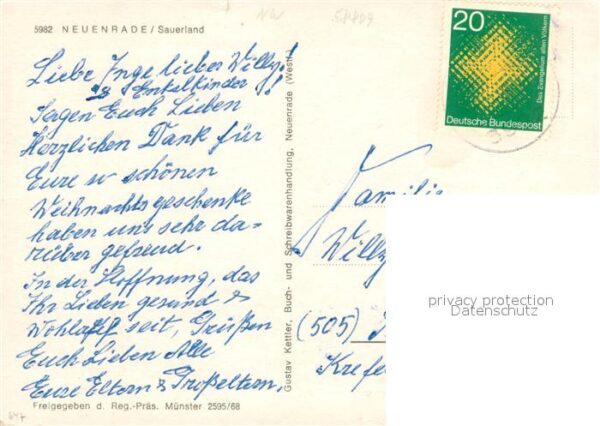 5982 NEUENRADE / Sauerland
Liebe Inge lieber Willy!
Enkelkinder
Sagen Euch Lieben
Herzlichen Dank für
Eure so schönen
Weihnachtsgeschenke
haben uns sehr da-
rüber gefreud.
In der Hoffnung, das
Ihr Lieben gesund &
Wohlauff seit, Grüßen
Euch Lieben Alle
Eure Eltern & Großeltern.
Freigegeben d. Reg.-Präs. Münster 2595/68
Gustav Kettler, Buch- und Schreibwarenhandlung, Neuenrade (Westf.)
20
Das Evangelium allen Völkern
Deutsche Bundespost
Familie
Willy
(505)
Krefe
privacy protection
Datenschutz